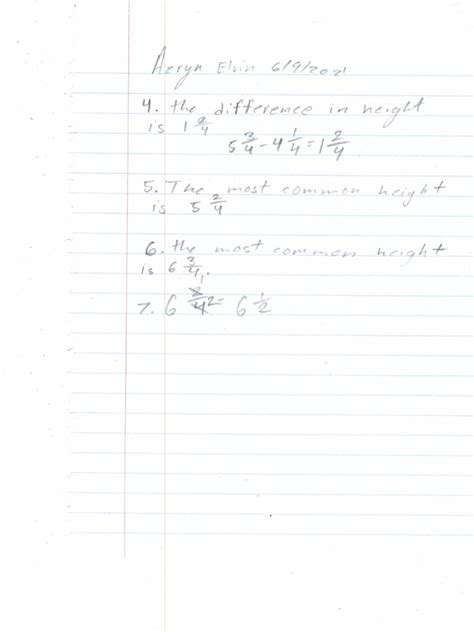 Aeryn Elvin 6/9/2021
4. the difference in height
is 1 2/4
5 3/4 - 4 1/4 = 1 2/4
5. The most common height
is 5 2/4
6. the most common height
is 6 3/4.
7. 6 2/4 = 6 1/2